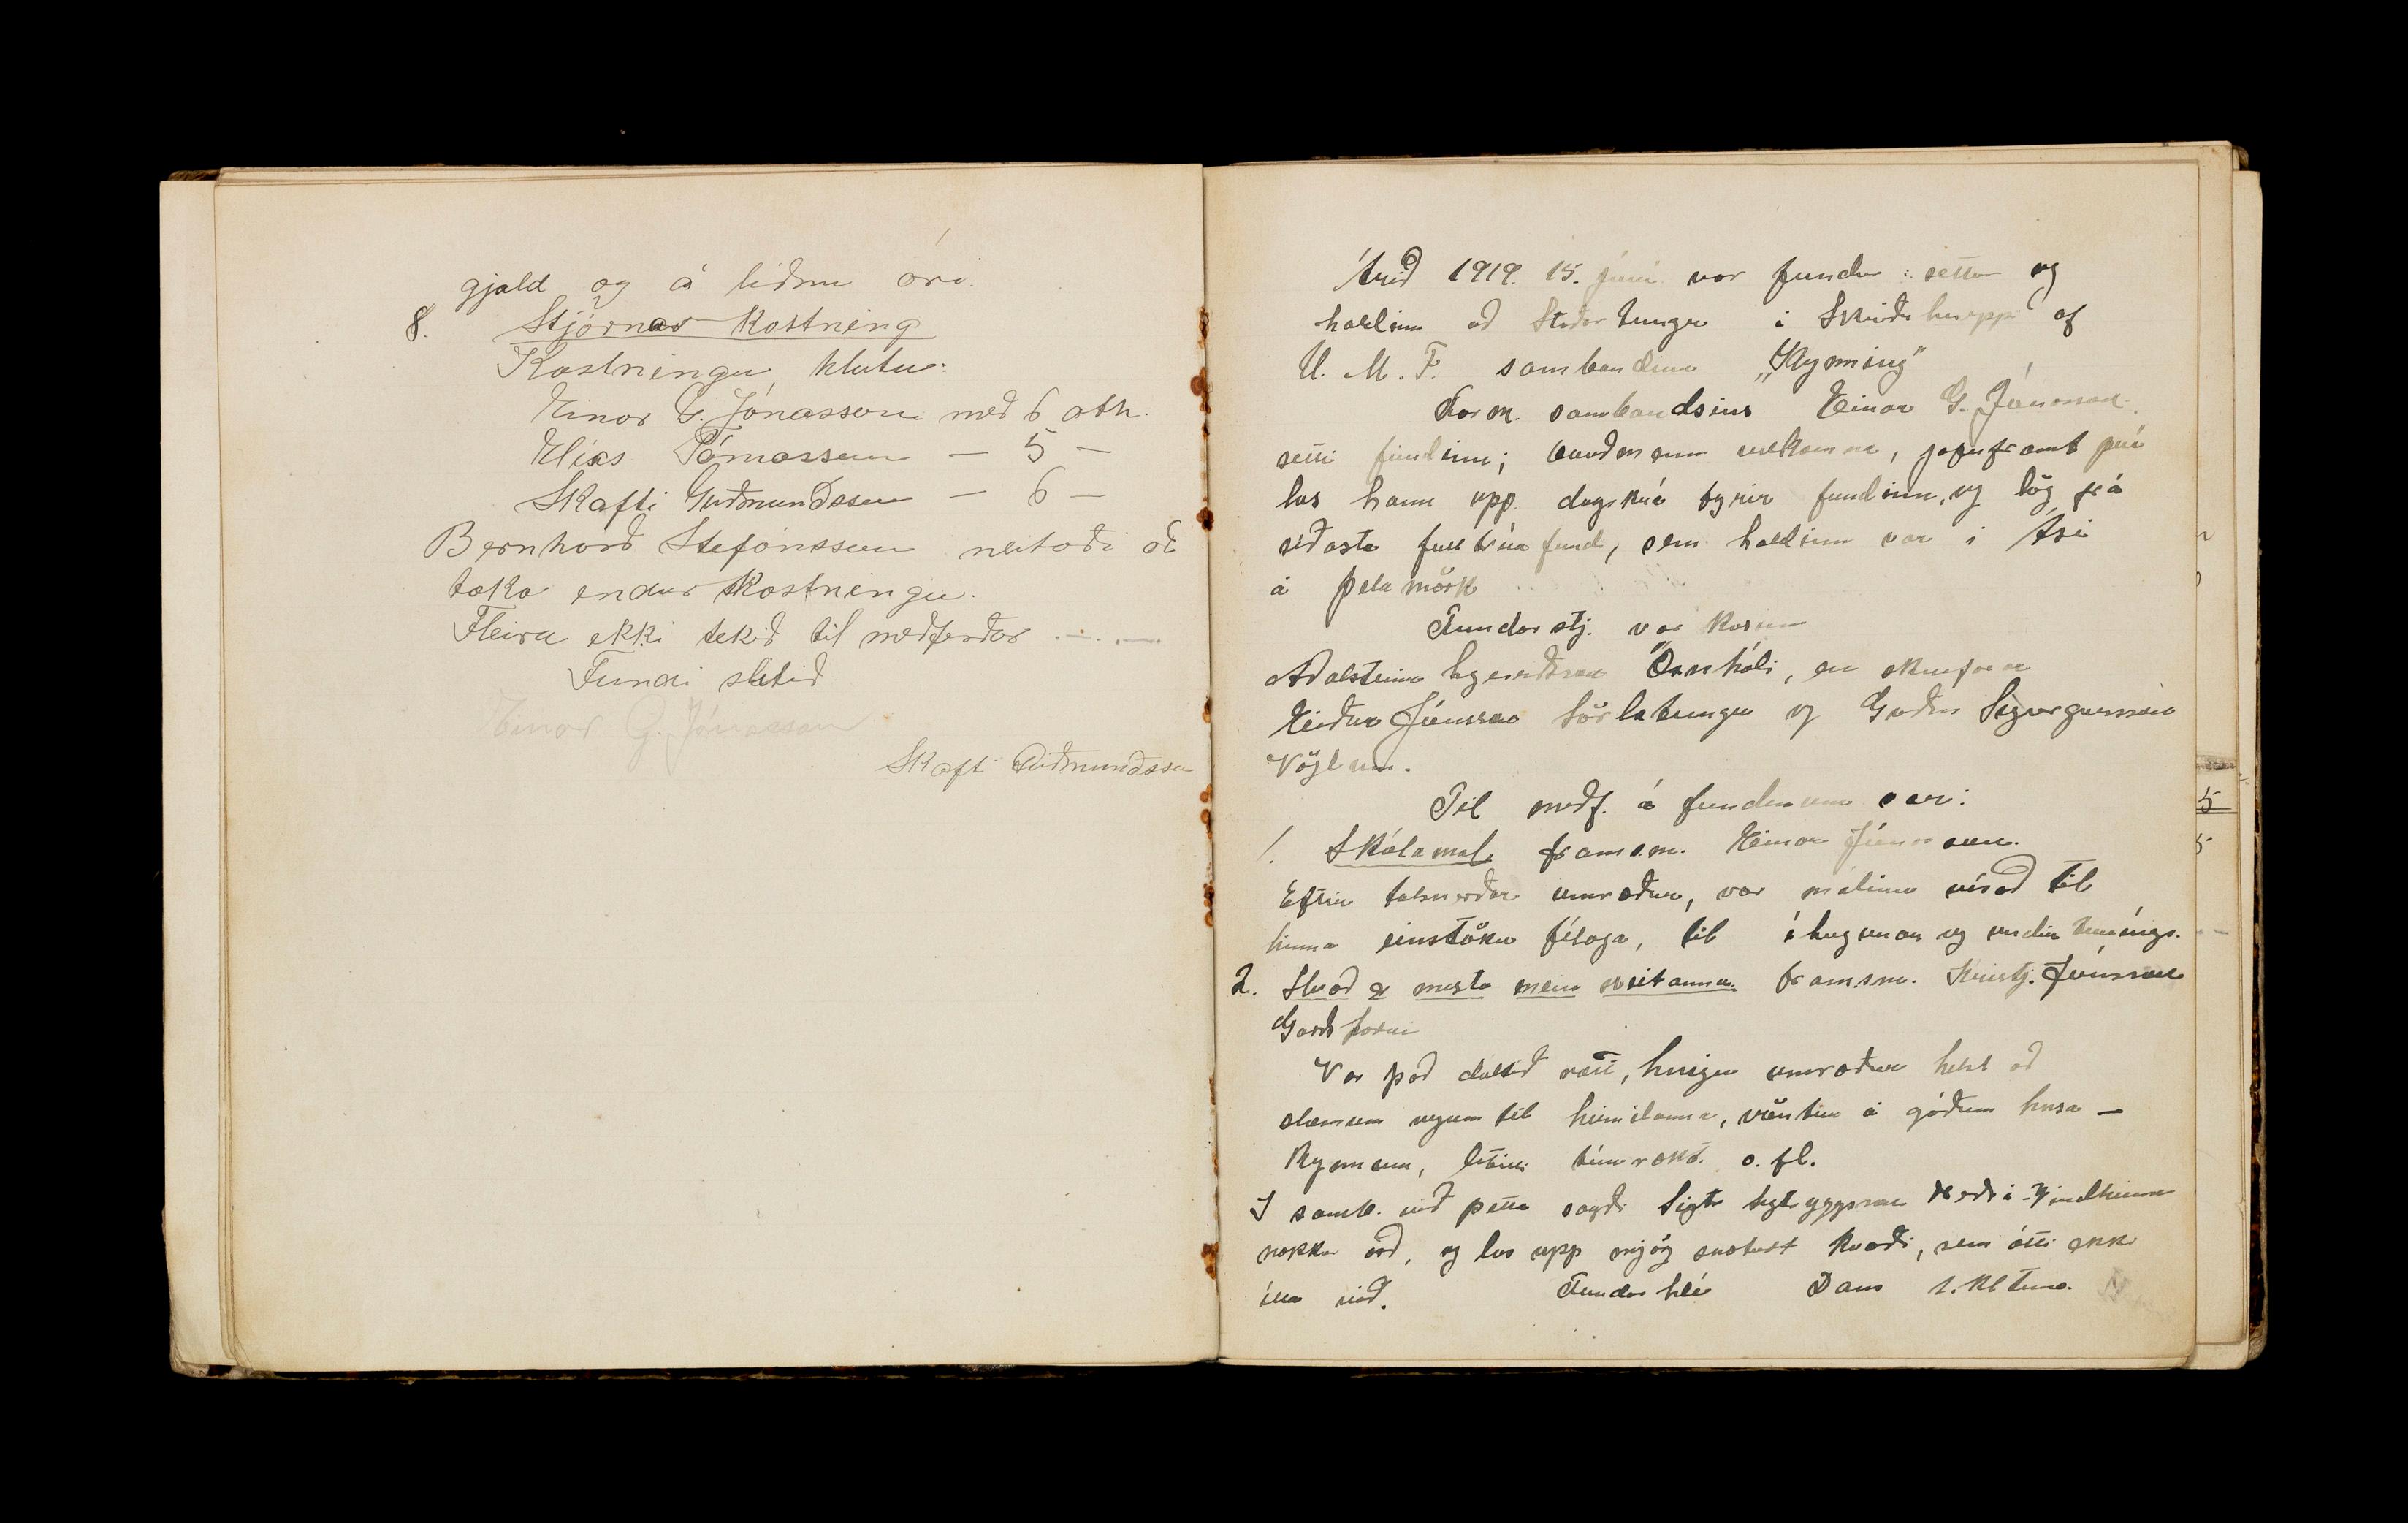 gjald og á liðnu ári.
8. Stjórnar kostning
Kostningu hlutu:
Einar G. Jónasson með 6 atk.
Elías Tómasson — 5 —
Skafti Guðmundsson — 6 —
Bernharð Stefánsson neitaði að
taka endur kostningu.
Fleira ekki tekið til meðferðar
Fundi slitið
Einar G. Jónasson
Skafti Guðmundsson
Árið 1919. 15. júní var fundur settur og
haldinn að Staðartungu í Skriðuhreppi af
U. M. F. sambandinu „Kynning"
Form. sambandsins Einar G. Jónasson
setti fundinn; bauð menn velkomna, jafnframt því
las hann upp dagskrá fyrir fundinn, og lög frá
síðasta fulltrúafundi, sem haldinn var í Ási
á Þelamörk
Fundarstj. var kosinn
Aðalsteinn Öxnhóli, en skrifarar
Eiður Jónsson Sörlatungu og Sigurgeirsson
Vöglum.
Til meðf. á fundinum var:
1. Skólamál. framsm. Einar Jónasson.
Eftir talsverðar umræður, var málinu vísað til
hinna einstöku félaga, til íhugunar og undirbúnings.
2. Hvað er mesta mein sveitanna. framsm. Kristj. Jónsson
Var það dálítið rætt, hnigu umræður helst að
slæmum vegum til heimilanna, vöntun á góðum húsa-
kynnum, lítilli túnrækt o. fl.
Í samb. við þetta sagði Sigtr. Sigtryggsson
nokkur orð, og las upp mjög snoturt kvæði, sem átti ekki
illa við. Fundarhlé Dans 1. kl tíma.
5
5